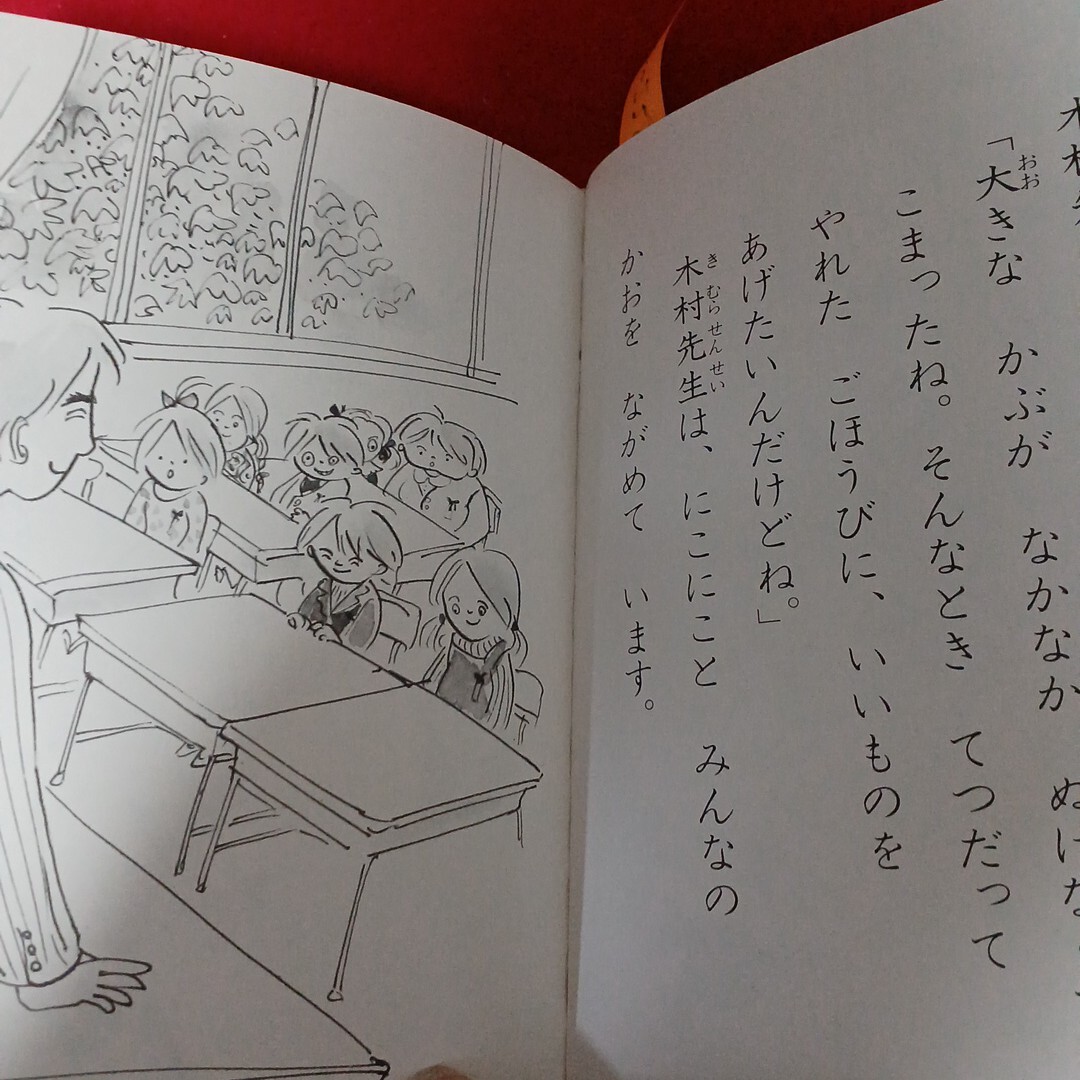 木村先
おお
「大きな かぶが なかなか ぬけな
こまったね。そんなとき てつだって
やれた ごほうびに、いいものを
あげたいんだけどね。」
き むら せん せい
木村先生は、にこにこと みんなの
かおを ながめて います。